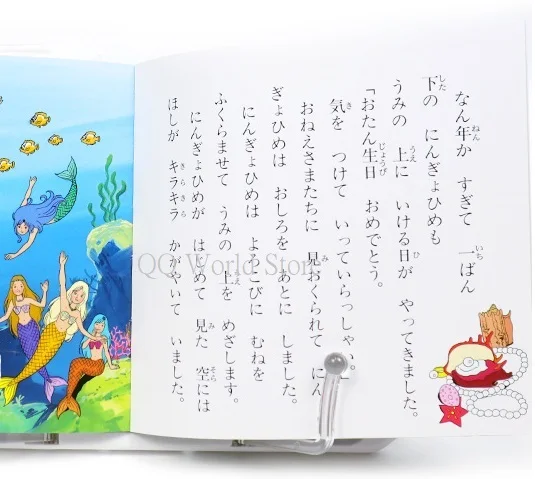 なん年か すぎて 一ばん
下の にんぎょひめも
うみの 上に いける日が やってきました。
「おたん生日 おめでとう。
気を つけて いっていらっしゃい。」
おねえさまたちに 見おくられて にん
ぎょひめは おしろを あとに しました。
にんぎょひめは よろこびに むねを
ふくらませて うみの 上を めざします。
にんぎょひめが はじめて 見た 空には
ほしが キラキラ かがやいて いました。
QQ World Store